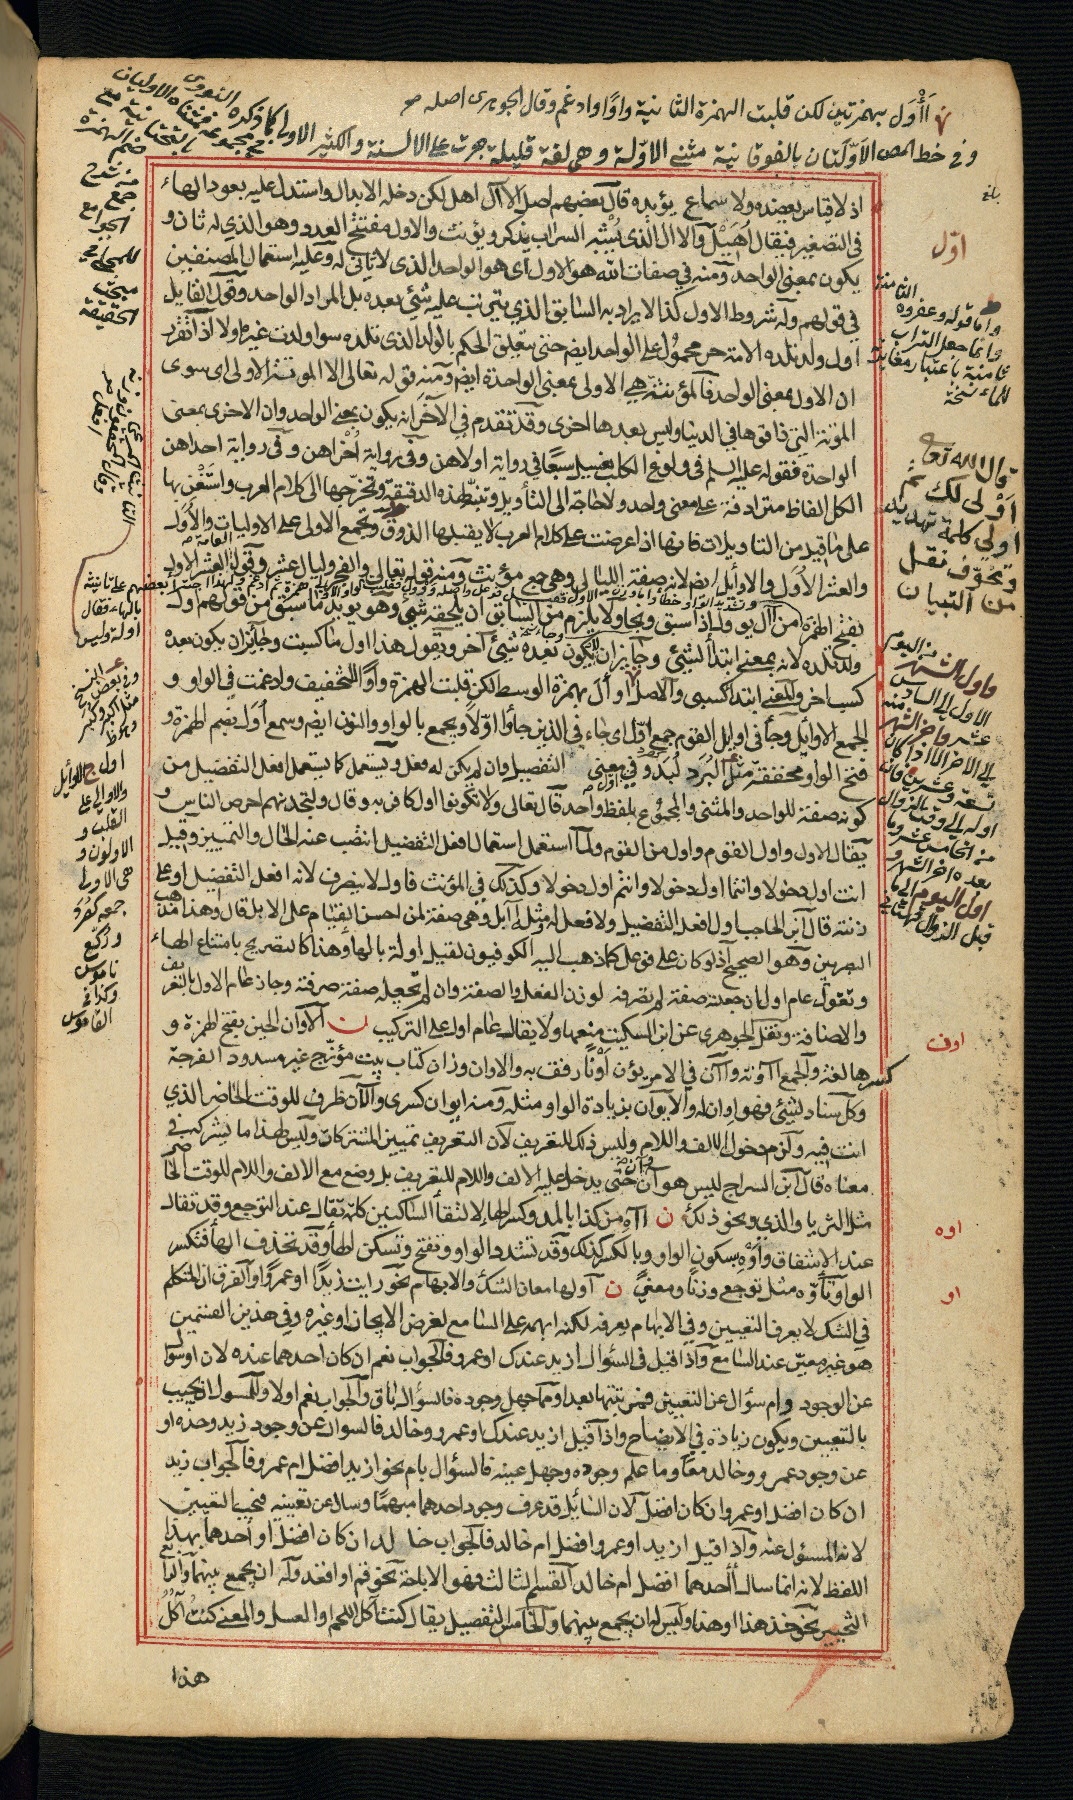 أَأْوَل بهمزتين لكن قلبت الهمزة الثانية واوا وادغم وقال الجوهرى اصله
وفى خط المص الاَوّلتان بالفوقانية مثنى الاوّلة وهى لغة قليلة جرت على الالسنة والكثير الاوليان
اذ لا قياس يعضده ولا سماع يؤيده قال بعضهم اصل الآل اهل لكن دخله الابدال واستدل عليه بعود الهاء
فى التصغير فيقال اُهَيْل والآل الذى يُشْبه السراب يذكر ويؤنث والاول مفتتح العدد وهو الذى له ثان و
يكون بمعنى الواحد ومنه فى صفات الله هو الاول اى هو الواحد الذى لا ثانى له وعليه استعمال المصنفين
فى قولهم وله شروط الاول كذا لا يراد به السابق الذى يترتب عليه شئ بعده بل المراد الواحد وقول القايل
اول ولد تلده الامة حر محمول على الواحد ايضا حتى يتعلق الحكم بالولد الذى تلده سوا ولدت غيره ولا اذ اتقرر
ان الاول بمعنى الواحد فالمؤنثة هى الاولى بمعنى الواحدة ايضا ومنه قوله تعالى الا الموتة الاولى اى سوى
الموتة التى ذاقوها فى الدنيا وليس بعدها اخرى وقد تقدم فى الآخر انه يكون بمعنى الواحد وان الاخرى بمعنى
الواحدة فقوله عليه السلم فى ولوغ الكلب يغسل سبعا فى رواية اولاهن وفى رواية اُخراهن وفى رواية احداهن
الكل الفاظ مترادفة على معنى واحد ولا حاجة الى التأويل وتنبه لهذه الدقيقة وتخرجها الى كلام العرب واستغن بها
على ما قيل من التاويلات فانها اذا عرضت على كلام العرب لا يقبلها الذوق وتجمع الاولى على الاوليات والأُوَل
والعشر الاُوَل والاوائل ايضا لانه صفة الليالى وهى جمع مؤنث ومنه قوله تعالى والفجر وليال عشر وقول العامة العشر الاول
بفتح الهمزة من آل يول اذا سبق وجا ولا يلزم من السابق ان يلحقه شئ وهو يويد ما سبق من قولهم اول
ولد تلده لانه بمعنى ابتدأ الشئ وجايز ان لا يكون بعده شئ آخر وتقول هذا اول ما كسبت وجايز ان يكون بعده
كسب اخر والمعنى ابتدا كسبى والاصل اوأل بهمزة الوسط لكن قلبت الهمزة واوا للتخفيف وادغمت فى الواو و
الجمع الاوايل وجأ فى اوايل القوم جمع اوّل اى جاء فى الذين جاؤا اوّلا ويجمع بالواو والنون ايضا وسمع أُوَل بضم الهمزة و
فتح الواو مخففة مثل اكبر وكبر وفى معنى التفضيل وان لم يكن له فعل ويستعمل كما يستعمل افعل التفضيل من
كونه صفة للواحد والمثنى والمجموع بلفظ واحد قال تعالى ولا تكونوا اول كافر به وقال ولتجدنهم احرص الناس و
يقال الاول واول القوم واول من القوم ولما استعمل استعمال افعل التفضيل انتصب عنه الحال والتمييز وقيل
انت اول دخولا وانتما اول دخولا وانتم اول دخولا وكذلك فى المؤنث فاول لا ينصرف لانه افعل التفضيل او على
زنته قال ابن الحاجب اول افعل التفضيل ولا فعل له ومثله آبل وهى صفة لمن احسن القيام على الابل قال وهذا مذهب
البصريين وهو الصحيح اذ لو كان على فوعل كما ذهب اليه الكوفيون لقيل اولة بالهاء وهذا كالتصريح بامتناع الهاء
وتقول عام اول ان جعلته صفة لم تصرفه لوزن الفعل والصفة وان لم تجعله صفة صرفته وجاز عام الاول بالتعريف
والاضافة ونقل الجوهرى عن ابن السكيت منعها ولا يقال عام اول على التركيب ن الاوان الحين بفتح الهمزة و
كسرها لغة والجمع آاونة وآان فى الامر يؤن أَوْنًا رفق به والاوان وزان كتاب بيت مؤزّج غير مسدود الفرجة
وكل سناد لشئ فهو اوان له والايوان بزيادة الواو مثله ومنه ايوان كسرى والآن ظرف للوقت الحاضر الذى
انت فيه ولزم دخول الالف واللام وليس ذلك للتعريف لان التعريف تمييز المشتركات وليس لهذا ما يشركه فى
معناه قال ابن السراج ليس هو آن حتى يدخل عليه الالف واللام للتعريف بل وضع مع الالف واللام للوقت الحاضر
مثل الثريا والذى ونحو ذلك ن اآه من كذا بالمد وكسر الها لالتقأ الساكنين كلمة تقال عند التوجع وقد تقال
عند الاشفاق واَوْهِ بسكون الواو وبالكسر كذلك وقد تشدد الواو وتفتح وتسكن الهأ وقد تحذف الهأ فتكسر
الواو وتأَوّه مثل توجع وزنا ومعنى ن آو لها معان الشك والابهام نحو رايت زيدا او عمروا والفرق ان المتكلم
فى الشك لا يعرف التعيين وفى الابهام يعرفه لكنه ابهمه على السامع لغرض الايجاز او غيره وفى هذين القسمين
هو غير معين عند السامع واذا قيل فى السؤال ازيد عندك او عمرو فالجواب نعم ان كان احدهما عنده لان او سوال
عن الوجود وام سؤال عن التعيين فمرتبتها بعد او فما جهل وجوده فالسؤال باو والجواب نعم او لا وللمسول ان يجيب
بالتعيين ويكون زيادة فى الايضاح واذا قيل ازيد عندك او عمرو وخالد فالسوال عن وجود زيد وحده او
عن وجود عمرو وخالد معا وما علم وجوده وجهل عينه فالسؤال بام نحو ازيد افضل ام عمرو فالجواب زيد
ان كان افضل او عمرو ان كان افضل لان السائل قد عرف وجود احدهما مبهما وسال عن تعيينه فيجب التعيين
لانه المسئول عنه واذا قيل ازيد او عمرو افضل ام خالد فالجواب خالد ان كان افضل او احدهما بهذا
اللفظ لانه انما سال أاحدهما افضل ام خالد القسم الثالث وهو الاباحة نحو قم او اقعد وله ان يجمع بينهما والرابع
التخيير نحو خذ هذا او هذا وليس له ان يجمع بينهما والخامس التفصيل يقال كنت آكل اللحم او العسل والمعنى كنت آكل
هذا
اوّل
واما قوله وعفروه الثامنة
وانما جعل التراب
ثامنة باعتبار مغايرة
للماء
قال الله تعالى
اَوْلى لك ثم
اولى كلمة تهديد
وتخوّف نقل
من التبيان
واول الشهر من اليوم
الاول الى السادس
عشر واخر الشهر منه
الى الاخر الا اذا كان
تسعة وعشرين فان
اوله الى وقت الزوال
من الخامس عشر وما
بعده اخر الشهر و
اول اليوم الى ما
قبل الزوال
اون
اوه
او
اول ج الاوايل
والاوالى على
القلب و
الاولون و
هى الاولى
جمعه كصُرَد
وركّع
قاموس
وكذا فى
القاموس